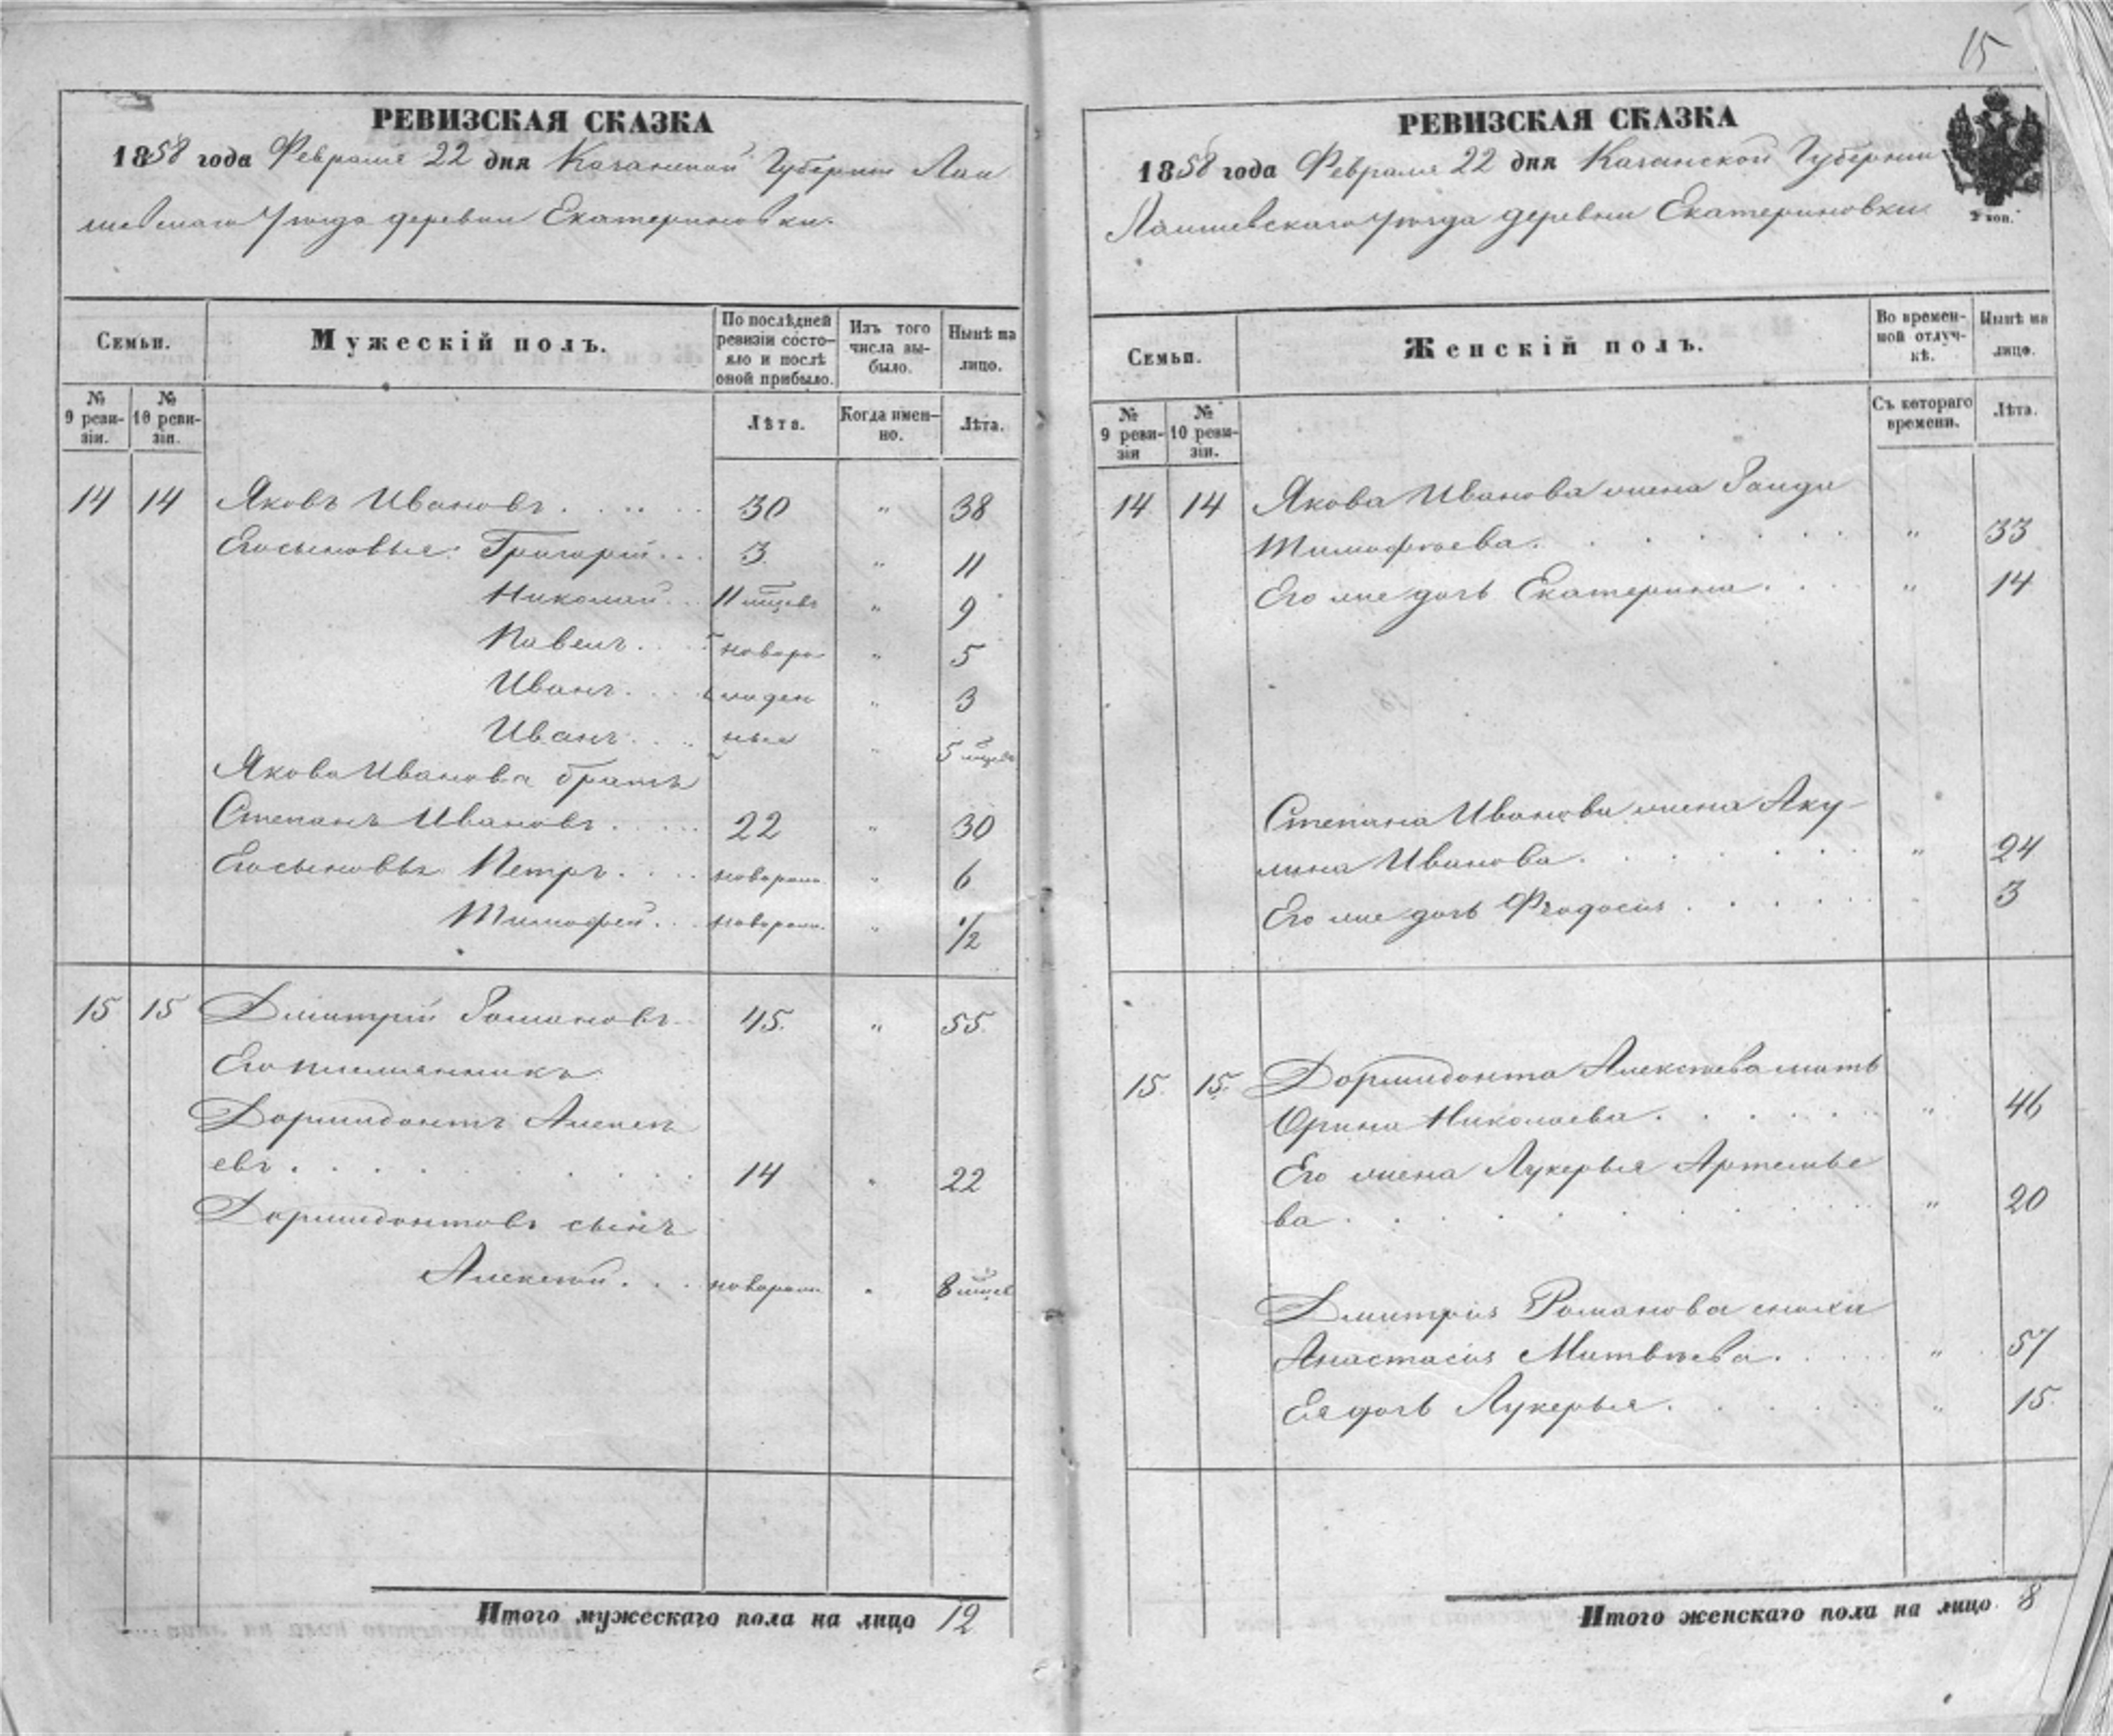 15
РЕВИЗСКАЯ СКАЗКА
1858 года Февраля 22 дня Казанской Губернии Лаи
шевскаго Уѣзда деревни Екатериновки.
Семьи.
Мужескій полъ.
По послѣдней ревизіи состояло и послѣ оной прибыло.
Изъ того числа выбыло.
Нынѣ на лицо.
№ 9 ревизіи.
№ 10 ревизіи.
Лѣта.
Когда именно.
Лѣта.
14 14 Яковъ Ивановъ 30 " 38
Его сыновья: Григорій 3 " 11
Николай 11 мцевъ " 9
Павелъ новоро " 5
Иванъ жден " 3
Иванъ ные " 5 мцевъ
Якова Иванова братъ
Степанъ Ивановъ 22 " 30
Его сыновья Петръ новорож. " 6
Тимофей новорож. " 1/2
15 15 Дмитрій Романовъ 45. " 55
Его племянникъ
Дормидонтъ Алексѣ
евъ 14 " 22
Дормидонтовъ сынъ
Алексѣй новорож. " 8 мцев
Итого мужескаго пола на лицо 12
РЕВИЗСКАЯ СКАЗКА
1858 года Февраля 22 дня Казанской Губернии
Лаишевскаго Уѣзда деревни Екатериновки
2 коп.
Семьи.
Женскій полъ.
Во временной отлучкѣ.
Нынѣ на лицо.
№ 9 ревизіи
№ 10 ревизіи.
Съ котораго времени.
Лѣта.
14 14 Якова Иванова жена
Тимофѣева. " 33
Его же дочь Екатерина. " 14
Степана Иванова жена Аку-
лина Иванова. " 24
Его же дочь Феодосія 3
15 15. Дормидонта Алексѣева мать
Орина Николаева. " 46
Его жена Лукерья Артемье
ва " 20
Дмитрія Романова сноха
Анастасія Матвѣева. " 57
Ея дочь Лукерья. " 15.
Итого женскаго пола на лицо 8